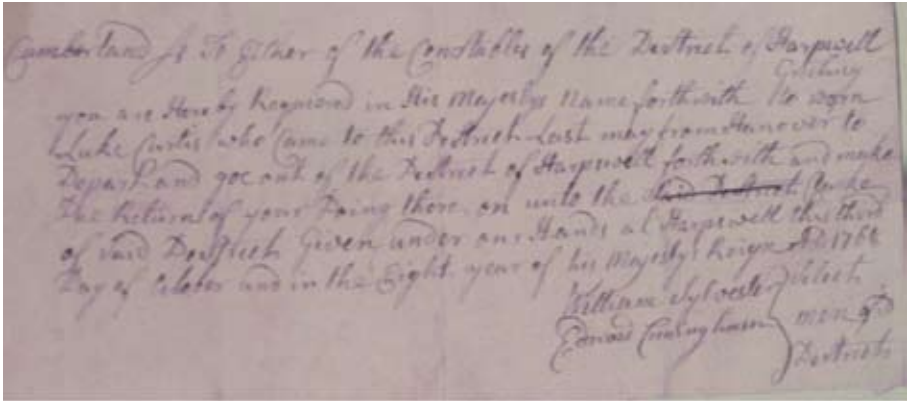 Cumberland Ss To Either of the Constables of the Destrict of Harpswell
Greeting
you are Hereby Required in His Majestys Name forthwith to worn
Luke Curtis who Came to this Destrict Last may from Hanover to
Depart and goe out of the Destrict of Harpswell forthwith and make
Due Return of your Doing there on unto the said Destrict Clarke
of said Destrict Given under our Hands at Harpswell this third
Day of October and in the Eight year of his Majestys Reign AD 1768
William Sylvester Select
Edward Cuningham men of sd
Destrict